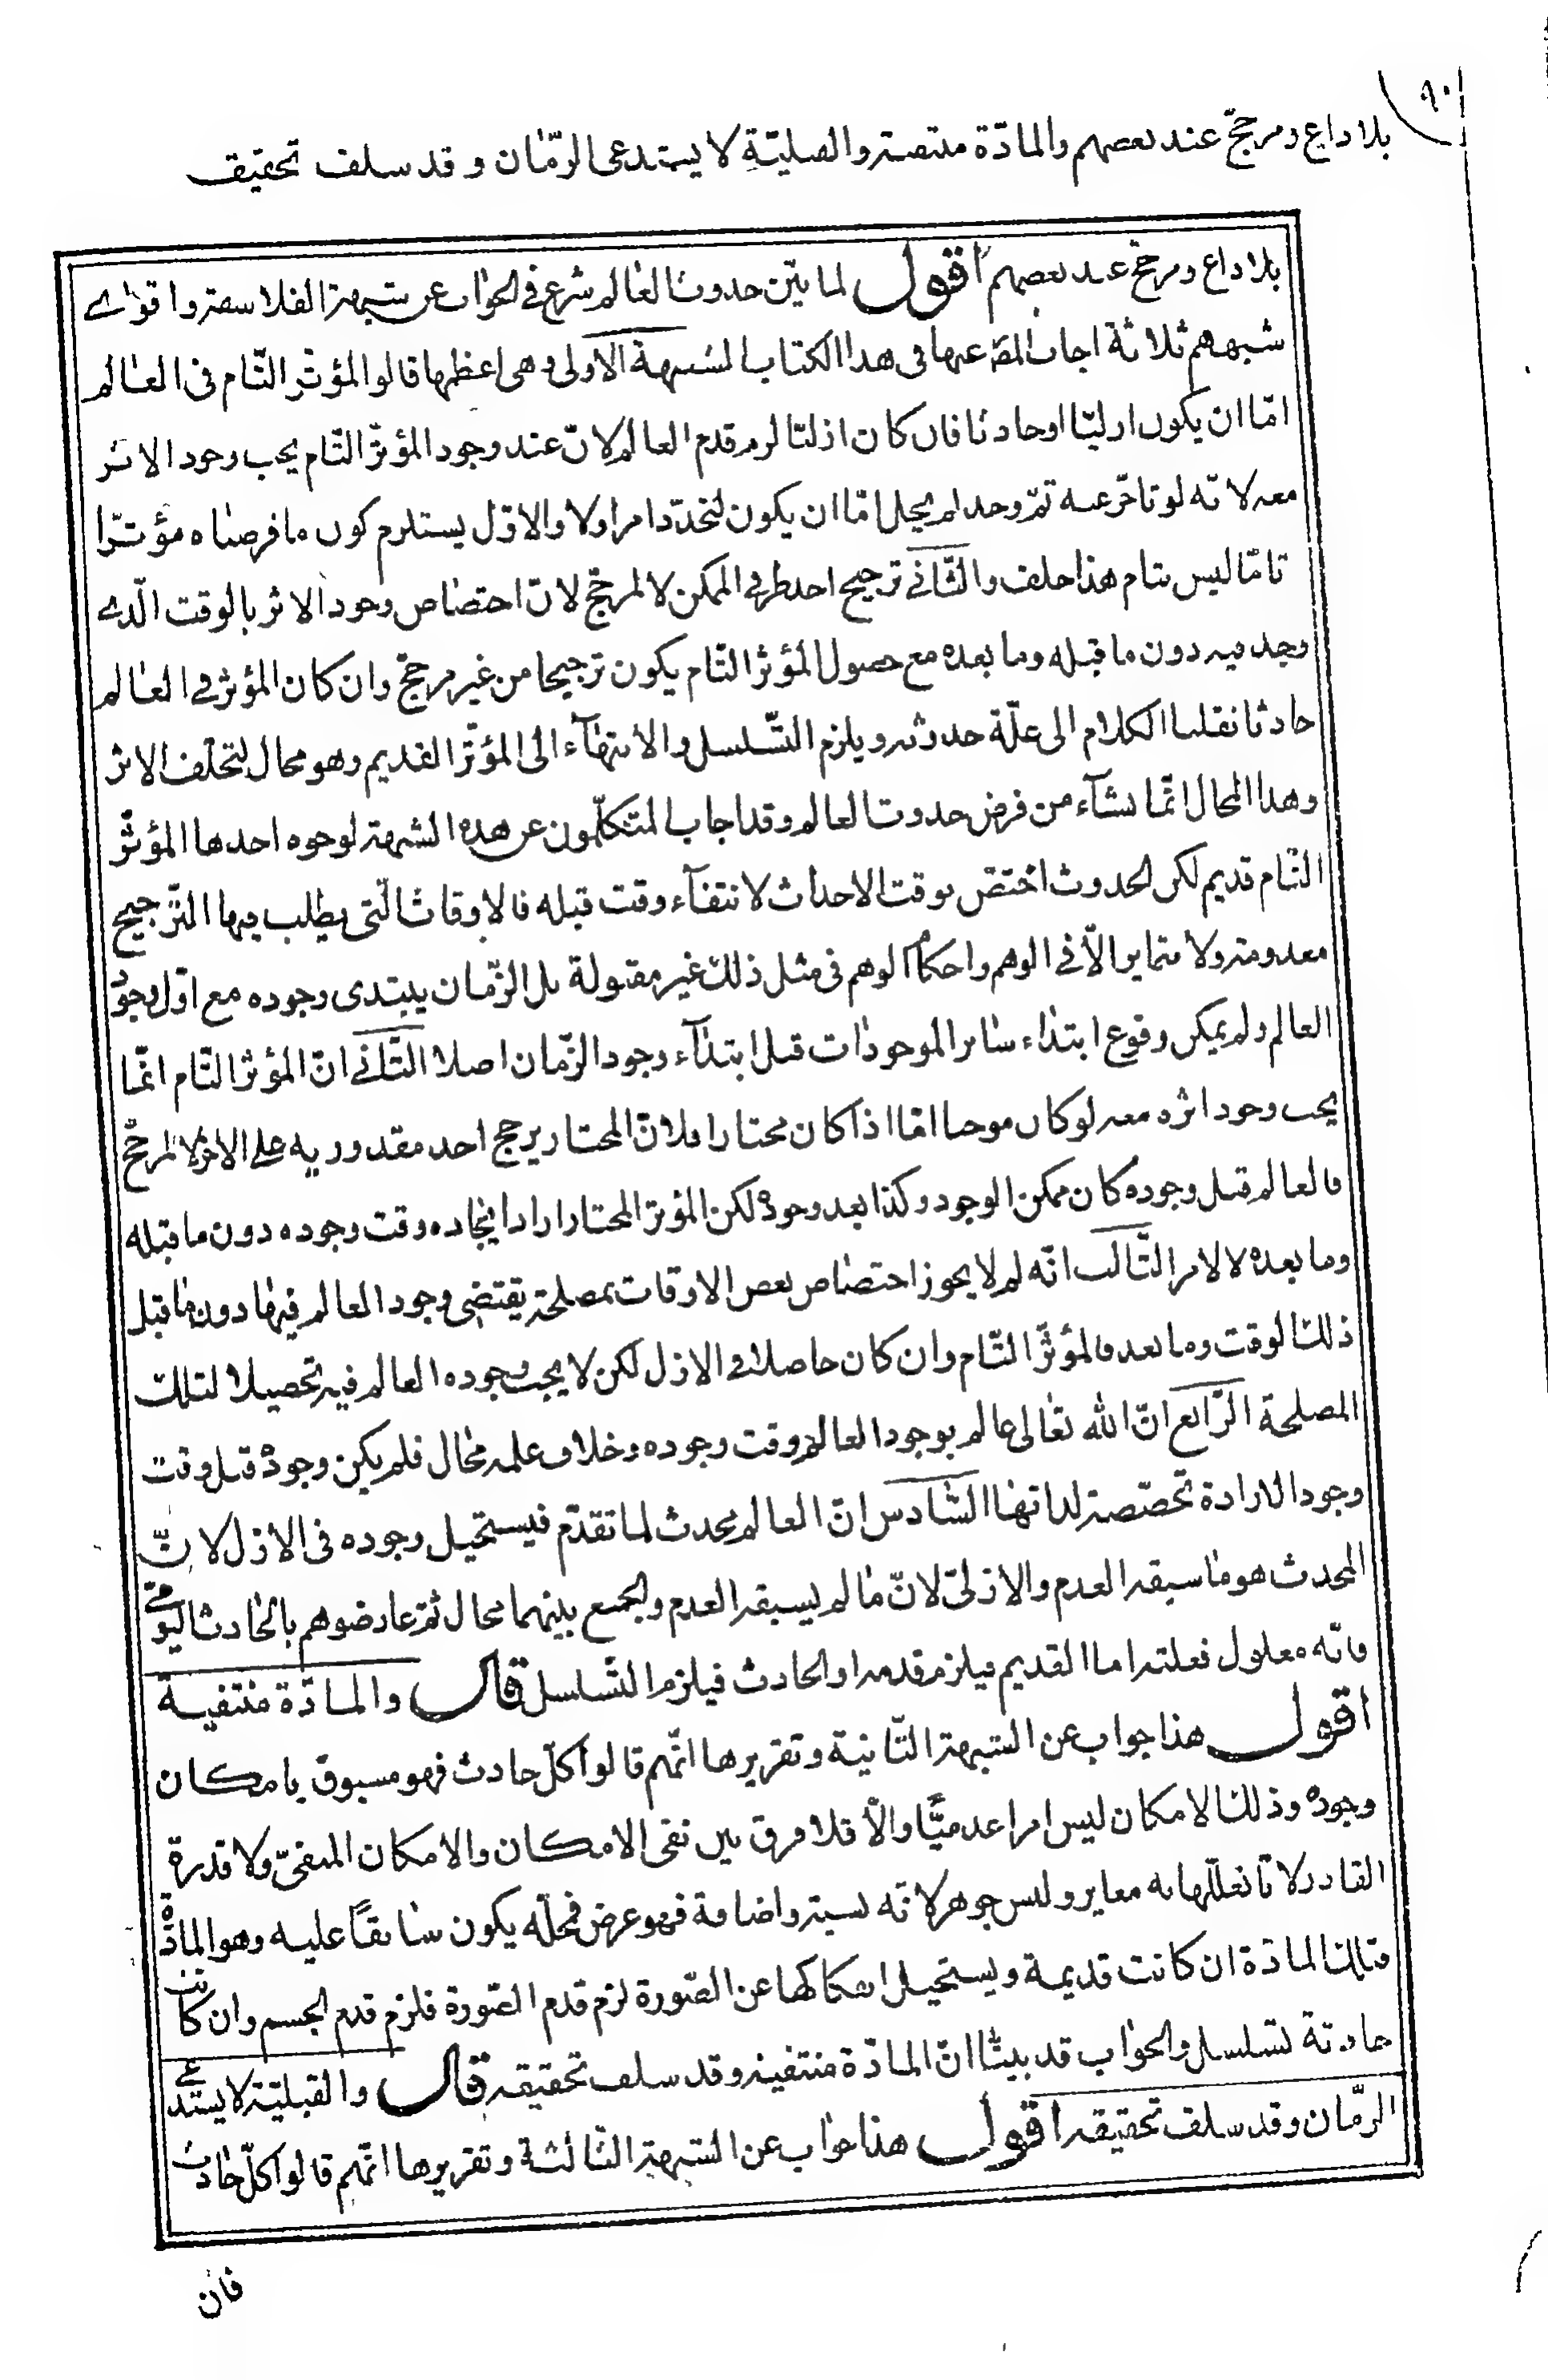 ٩٠
بلا داع ومرجّح عند بعضهم والمادّة منتفية والقبليّة لا يستدعى الزّمان وقد سلف تحقيق
بلا داع ومرجّح عند بعضهم اقول لما بيّن حدوث العالم شرع فى الجواب عن شبهة الفلاسفة واقوى
شبههم ثلاثة اجاب المصّ عنها فى هذا الكتاب الشبهة الاولى وهى اعظمها قالوا المؤثر التّام فى العالم
امّا ان يكون ازليّا او حادثا فان كان ازليّا لزم قدم العالم لانّ عند وجود المؤثّر التّام يجب وجود الاثر
معه لانّه لو تاخّر عنه ثمّ وجد لم يخل امّا ان يكون لتجدّد امر او لا والاوّل يستلزم كون ما فرضناه مؤثرّا
تامّا ليس بتام هذا خلف والثّانى ترجيح احد طرفى الممكن لا لمرجّح لانّ اختصاص وجود الاثر بالوقت الّذى
وجد فيه دون ما قبله وما بعده مع حصول المؤثر التّام يكون ترجيحا من غير مرجّح وان كان المؤثر فى العالم
حادثا نقلنا الكلام الى علّة حدوثه ويلزم التّسلسل والانتهآء الى المؤثّر القديم وهو محال لتخلّف الاثر
وهذا المحال انّما نشآء من فرض حدوث العالم وقد اجاب المتكلّمون عن هذه الشبهة لوجوه احدها المؤثّر
التّام قديم لكن الحدوث اختصّ بوقت الاحداث لانتفآء وقت قبله فالاوقات الّتى يطلب فيها التّرجيح
معدومة ولا متمايز الّا فى الوهم واحكام الوهم فى مثل ذلك غير مقبولة بل الزّمان يبتدى وجوده مع اوّل وجود
العالم ولم يمكن وقوع ابتداء سائر الموجودات قبل ابتدآء وجود الزّمان اصلا الثّانى انّ المؤثر التّام انّما
يجب وجود اثره معه لو كان موجبا امّا اذا كان مختارا فلانّ المختار يرجح احد مقدوريه على الاخر لا لمرجّح
فالعالم قبل وجوده كان ممكن الوجود وكذا بعد وجوده لكن المؤثر المختار اراد ايجاده وقت وجوده دون ما قبله
وما بعده لا لامر الثّالث انّه لم لا يجوز اختصاص بعض الاوقات بمصلحة يقتضى وجود العالم فيها دون ما قبل
ذلك الوقت وما بعد فالمؤثّر التّام وان كان حاصلا فى الازل لكن لا يجب وجوده العالم فيه تحصيلا لتلك
المصلحة الرّابع انّ الله تعالى عالم بوجود العالم وقت وجوده وخلاف علمه محال فلم يكن وجوده قبل وقت
وجود الارادة تخصّصة لذاتها السّادس انّ العالم محدث لما تقدّم فيستحيل وجوده فى الازل لانّ
المحدث هو ما سبقه العدم والازلىّ لانّ ما لم يسبقه العدم والجمع بينهما محال ثمّ عارضوهم بالحادث اليومى
فانّه معلول فعلته اما القديم فيلزم قدمه او الحادث فيلزم التّسلسل قال والمادّة منتفية
اقول هذا جواب عن الشبهة الثّانية وتقريرها انّهم قالوا كلّ حادث فهو مسبوق بامكان
وجوده وذلك الامكان ليس امرا عدميّا والّا فلا فرق بين نفى الامكان والامكان المنفىّ ولا قدرة
القادر لانّا نعلّلها به مغاير وليس جوهر لانّه نسبة واضافة فهو عرض فمحلّه يكون سابقًا عليه وهو المادّة
فتلك المادّة ان كانت قديمة ويستحيل انفكاكها عن الصّورة لزم قدم الصّورة فلزم قدم الجسم وان كانت
حادثة تسلسل والجواب قد بيّنّا انّ المادّة منتفية وقد سلف تحقيقه قال والقبليّة لا يستدعى
الزّمان وقد سلف تحقيقه اقول هذا جواب عن الشبهة الثّالثة وتقريرها انّهم قالوا كلّ حادث
فان